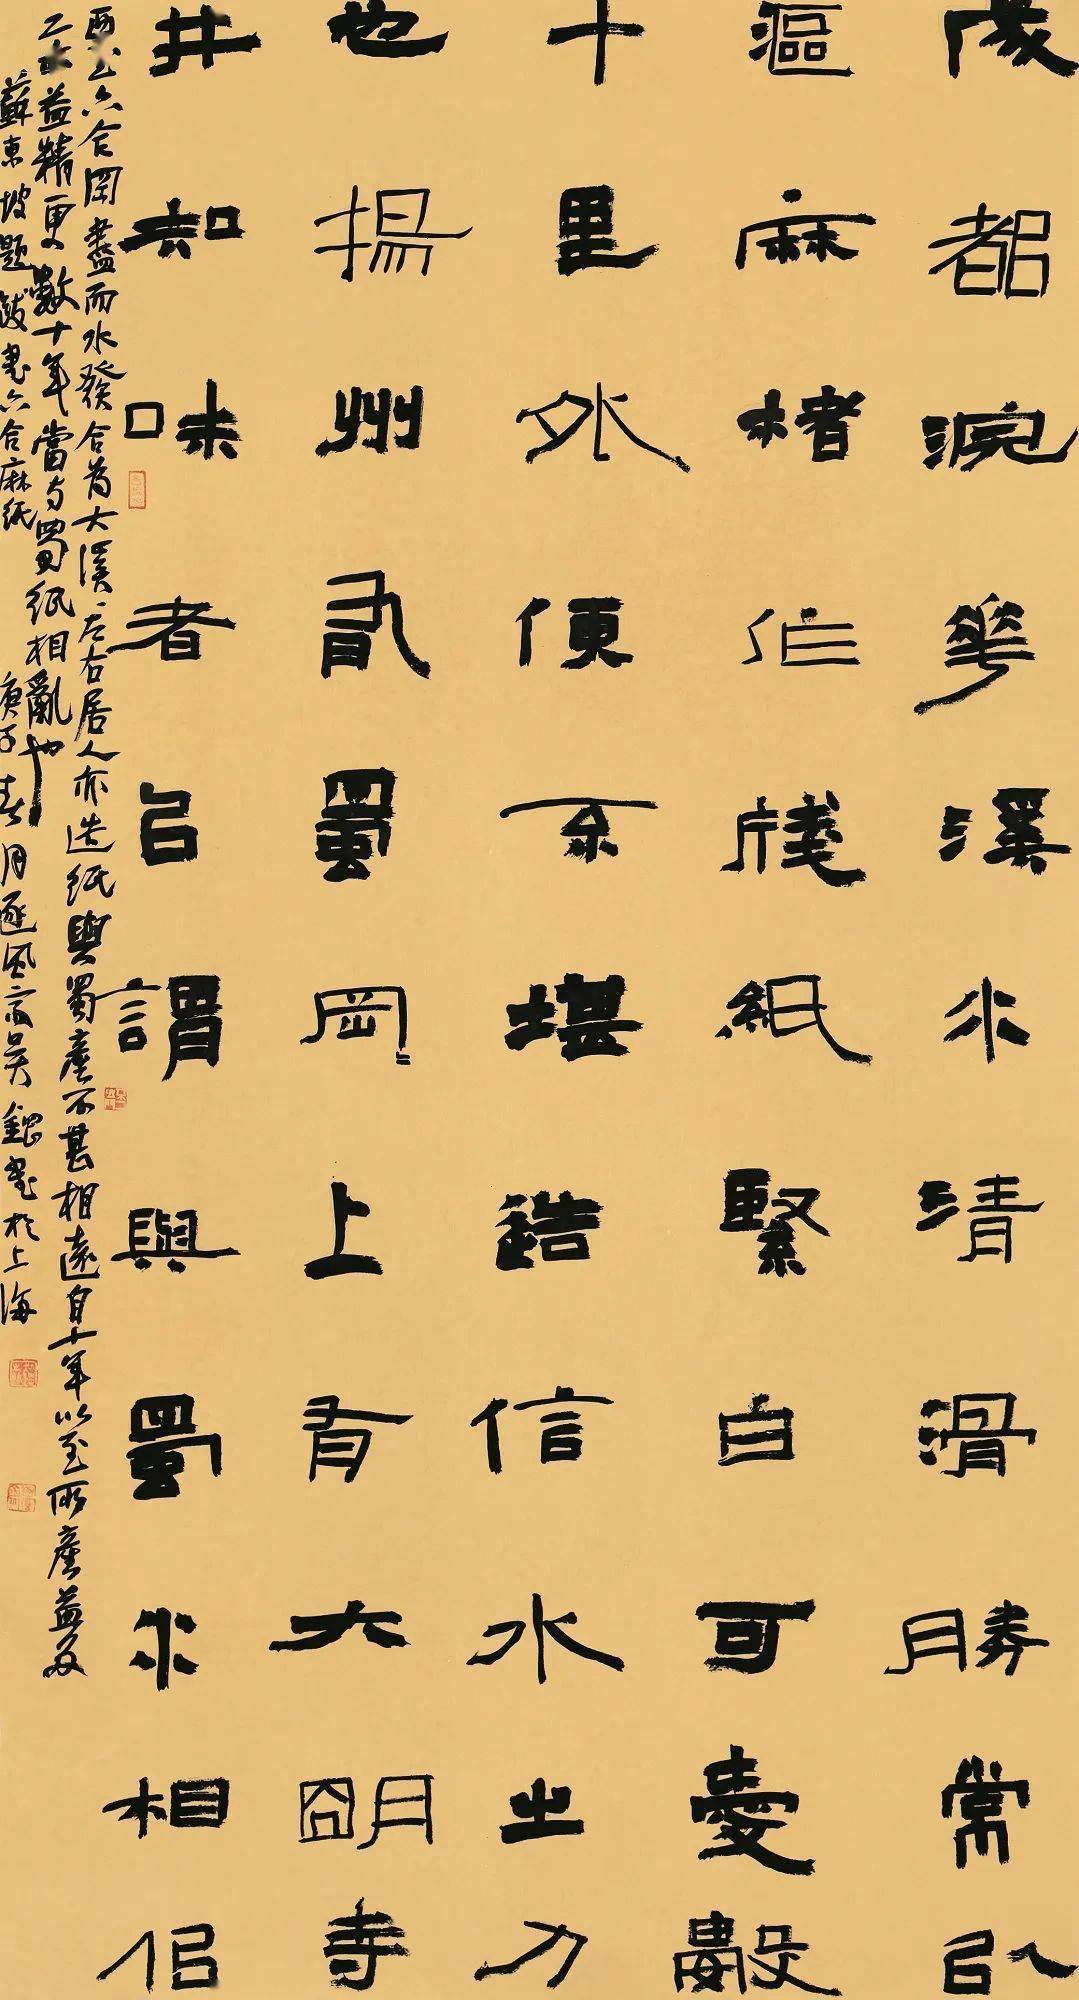 成都浣花溪水清滑勝常以
漚麻楮作牋紙緊白可愛數
十里外便不堪造信水之力
也揚州有蜀岡岡上有大明寺
井知味者以謂與蜀水相似
西至六合岡盡而水發合為大溪溪左右居人亦造紙與蜀產不甚相遠自十年以至所產益多
工亦益精更數十年當與蜀紙相亂也
蘇東坡題跋書六合麻紙 庚子春月逐風齋吳鋃書於上海